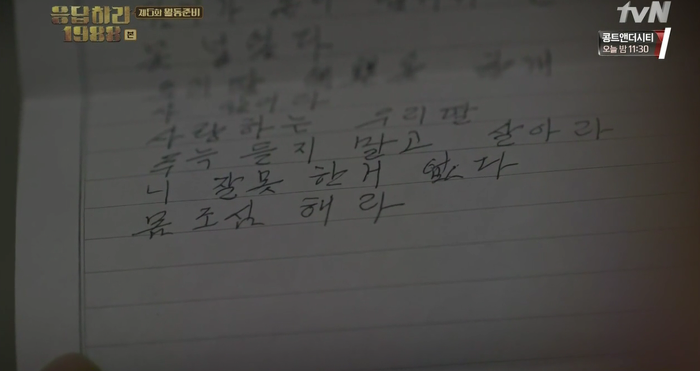 응답하라 1988
제5회 월동준비
tvN
콤트앤더시티
오늘 밤 11:30
싶다
사랑하는 우리딸
주눅 들지 말고 살아라
니 잘못 한거 없다
몸 조심 해라